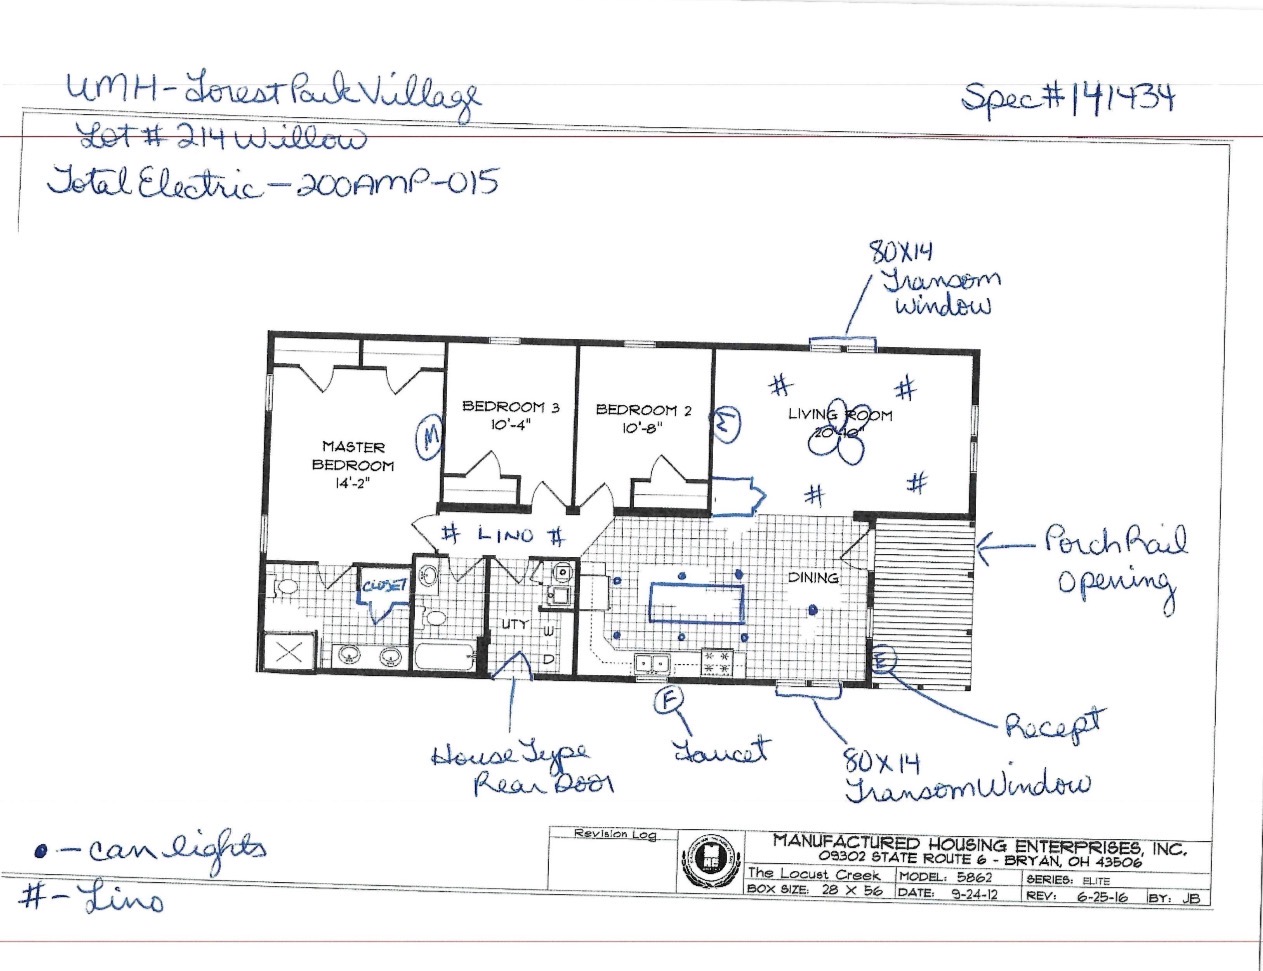 UMH-Forest Park Village
Spec# 141434
Lot # 214 Willow
Total Electric - 200AMP-015
80X14
Transom
Window
# #
BEDROOM 3
10'-4"
BEDROOM 2
10'-8"
LIVING ROOM
20'-10"
M
M
MASTER
BEDROOM
14'-2"
# #
# LINO #
Porch Rail
Opening
CLOSET
DINING
UTY
W
D
E
F
Recept
House Type
Rear Door
Faucet
80X14
Transom Window
• - can lights
# - Lino
Revision Log
MANUFACTURED HOUSING ENTERPRISES, INC.
09302 STATE ROUTE 6 - BRYAN, OH 43506
The Locust Creek MODEL: 5862 SERIES: ELITE
BOX SIZE: 28 X 56 DATE: 9-24-12 REV: 6-25-16 BY: JB